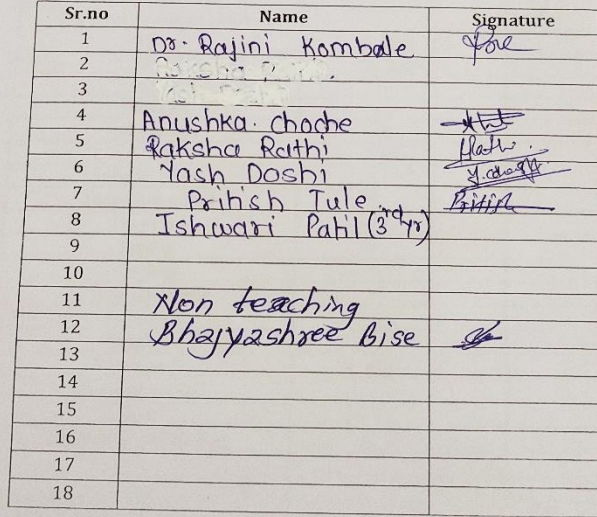 Sr.no Name Signature
1 Dr. Rajini Kambale
2
3
4 Anushka. Choche
5 Raksha Rathi Rathi.
6 Yash Doshi
7 Pritish Tule Pritish
8 Ishwari Patil (3rd yr)
9
10
11 Non teaching
12 Bhagyashree Bise
13
14
15
16
17
18